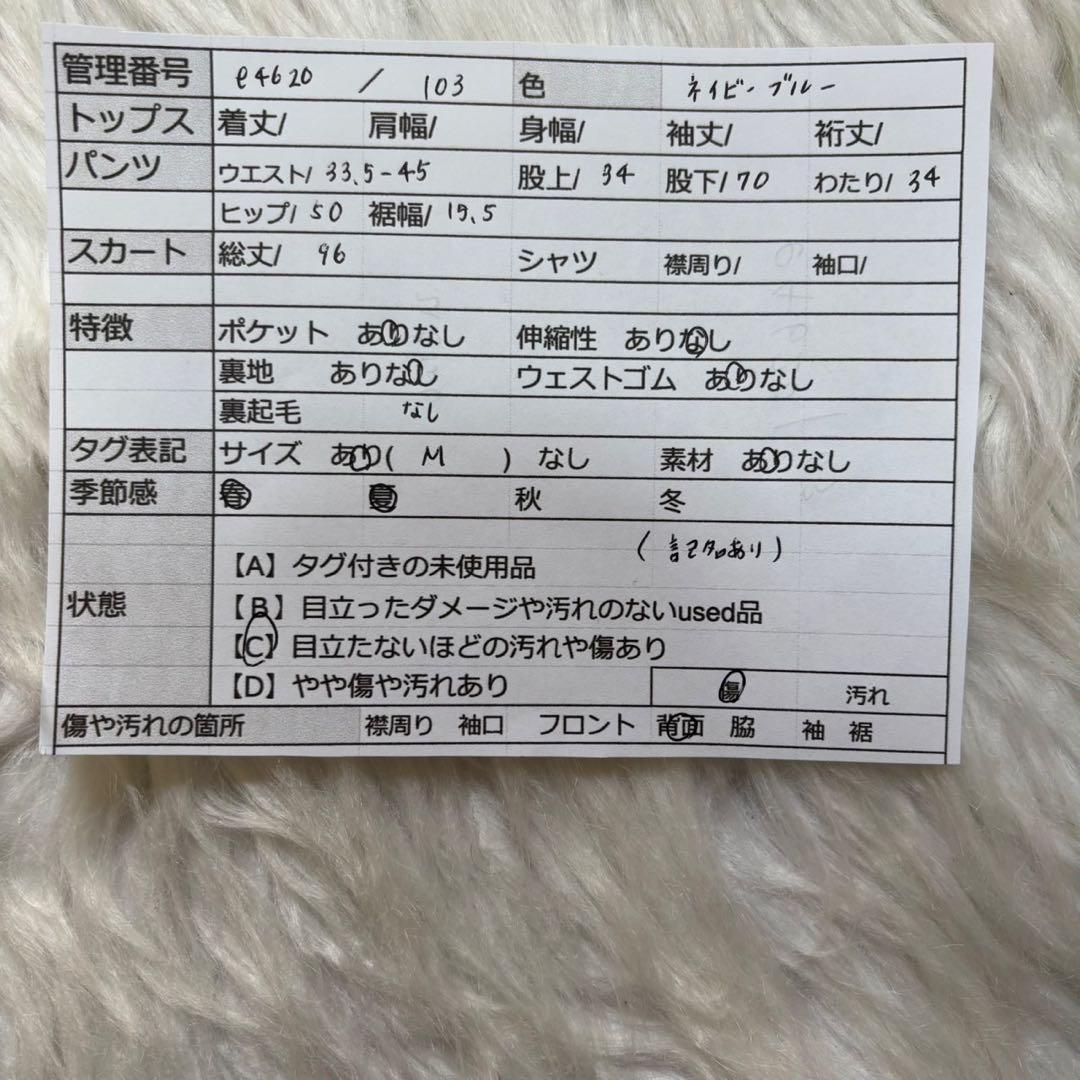 管理番号 e4620 / 103 色 ネイビーブルー
トップス 着丈/ 肩幅/ 身幅/ 袖丈/ 裄丈/
パンツ ウエスト/ 33.5-45 股上/ 34 股下/ 70 わたり/ 34
ヒップ/ 50 裾幅/ 19.5
スカート 総丈/ 96 シャツ 襟周り/ 袖口/
特徴 ポケット ありなし 伸縮性 ありなし
裏地 ありなし ウェストゴム ありなし
裏起毛 なし
タグ表記 サイズ あり( M ) なし 素材 ありなし
季節感 春 夏 秋 冬
(記名あり)
【A】タグ付きの未使用品
状態 【B】目立ったダメージや汚れのないused品
【C】目立たないほどの汚れや傷あり
【D】やや傷や汚れあり 傷 汚れ
傷や汚れの箇所 襟周り 袖口 フロント 背面 脇 袖 裾